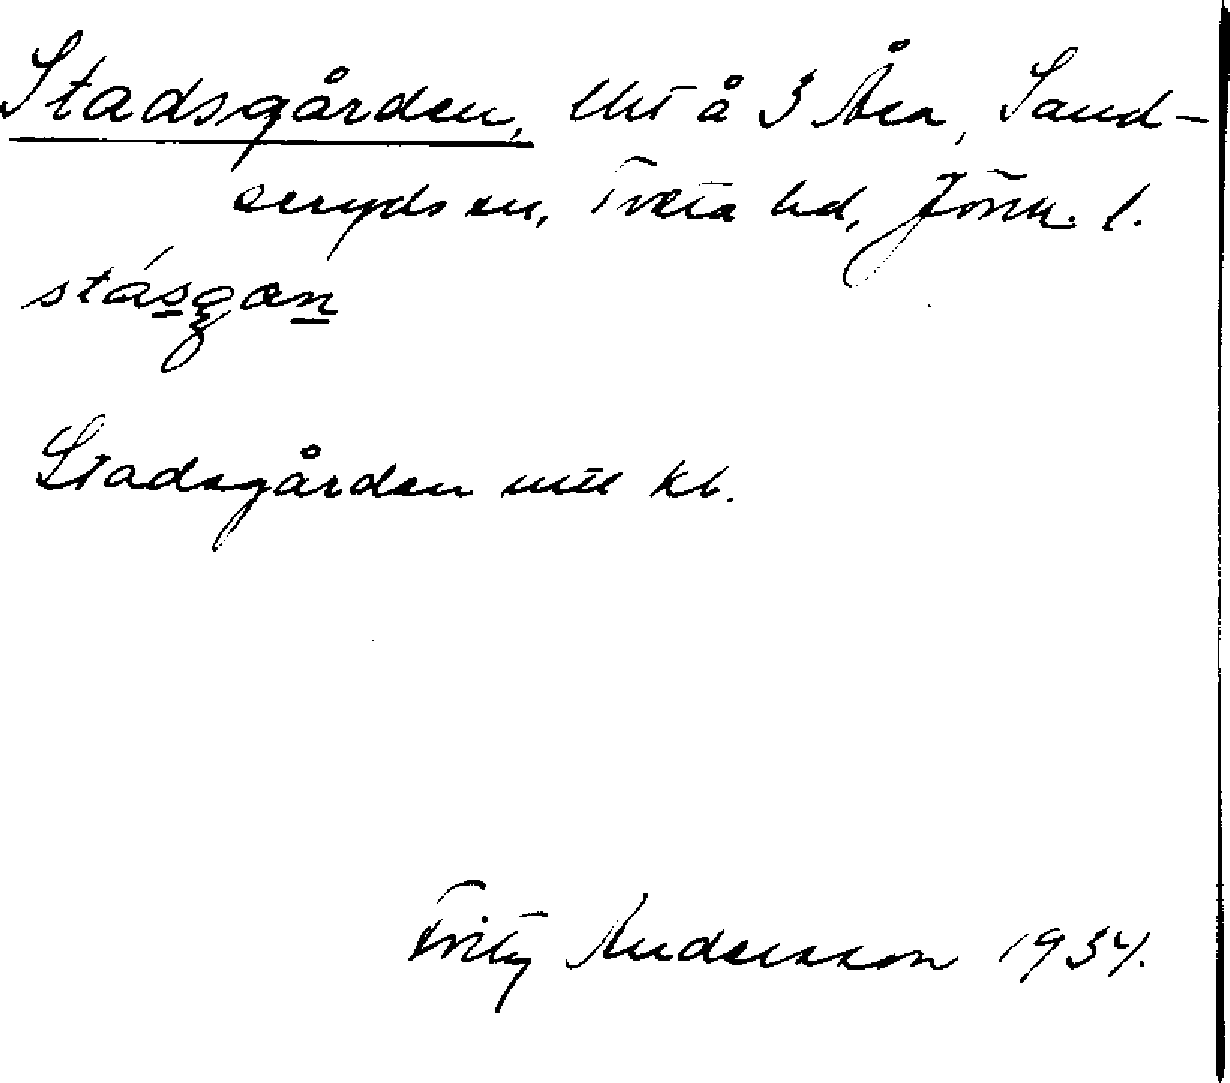 Stadsgården, lht å 3 Åsa, Sand-
seryds sn, Tveta hd, Jönk. l.
stásgan
Stadsgården utt kb.
Fritz Andersson 1934.